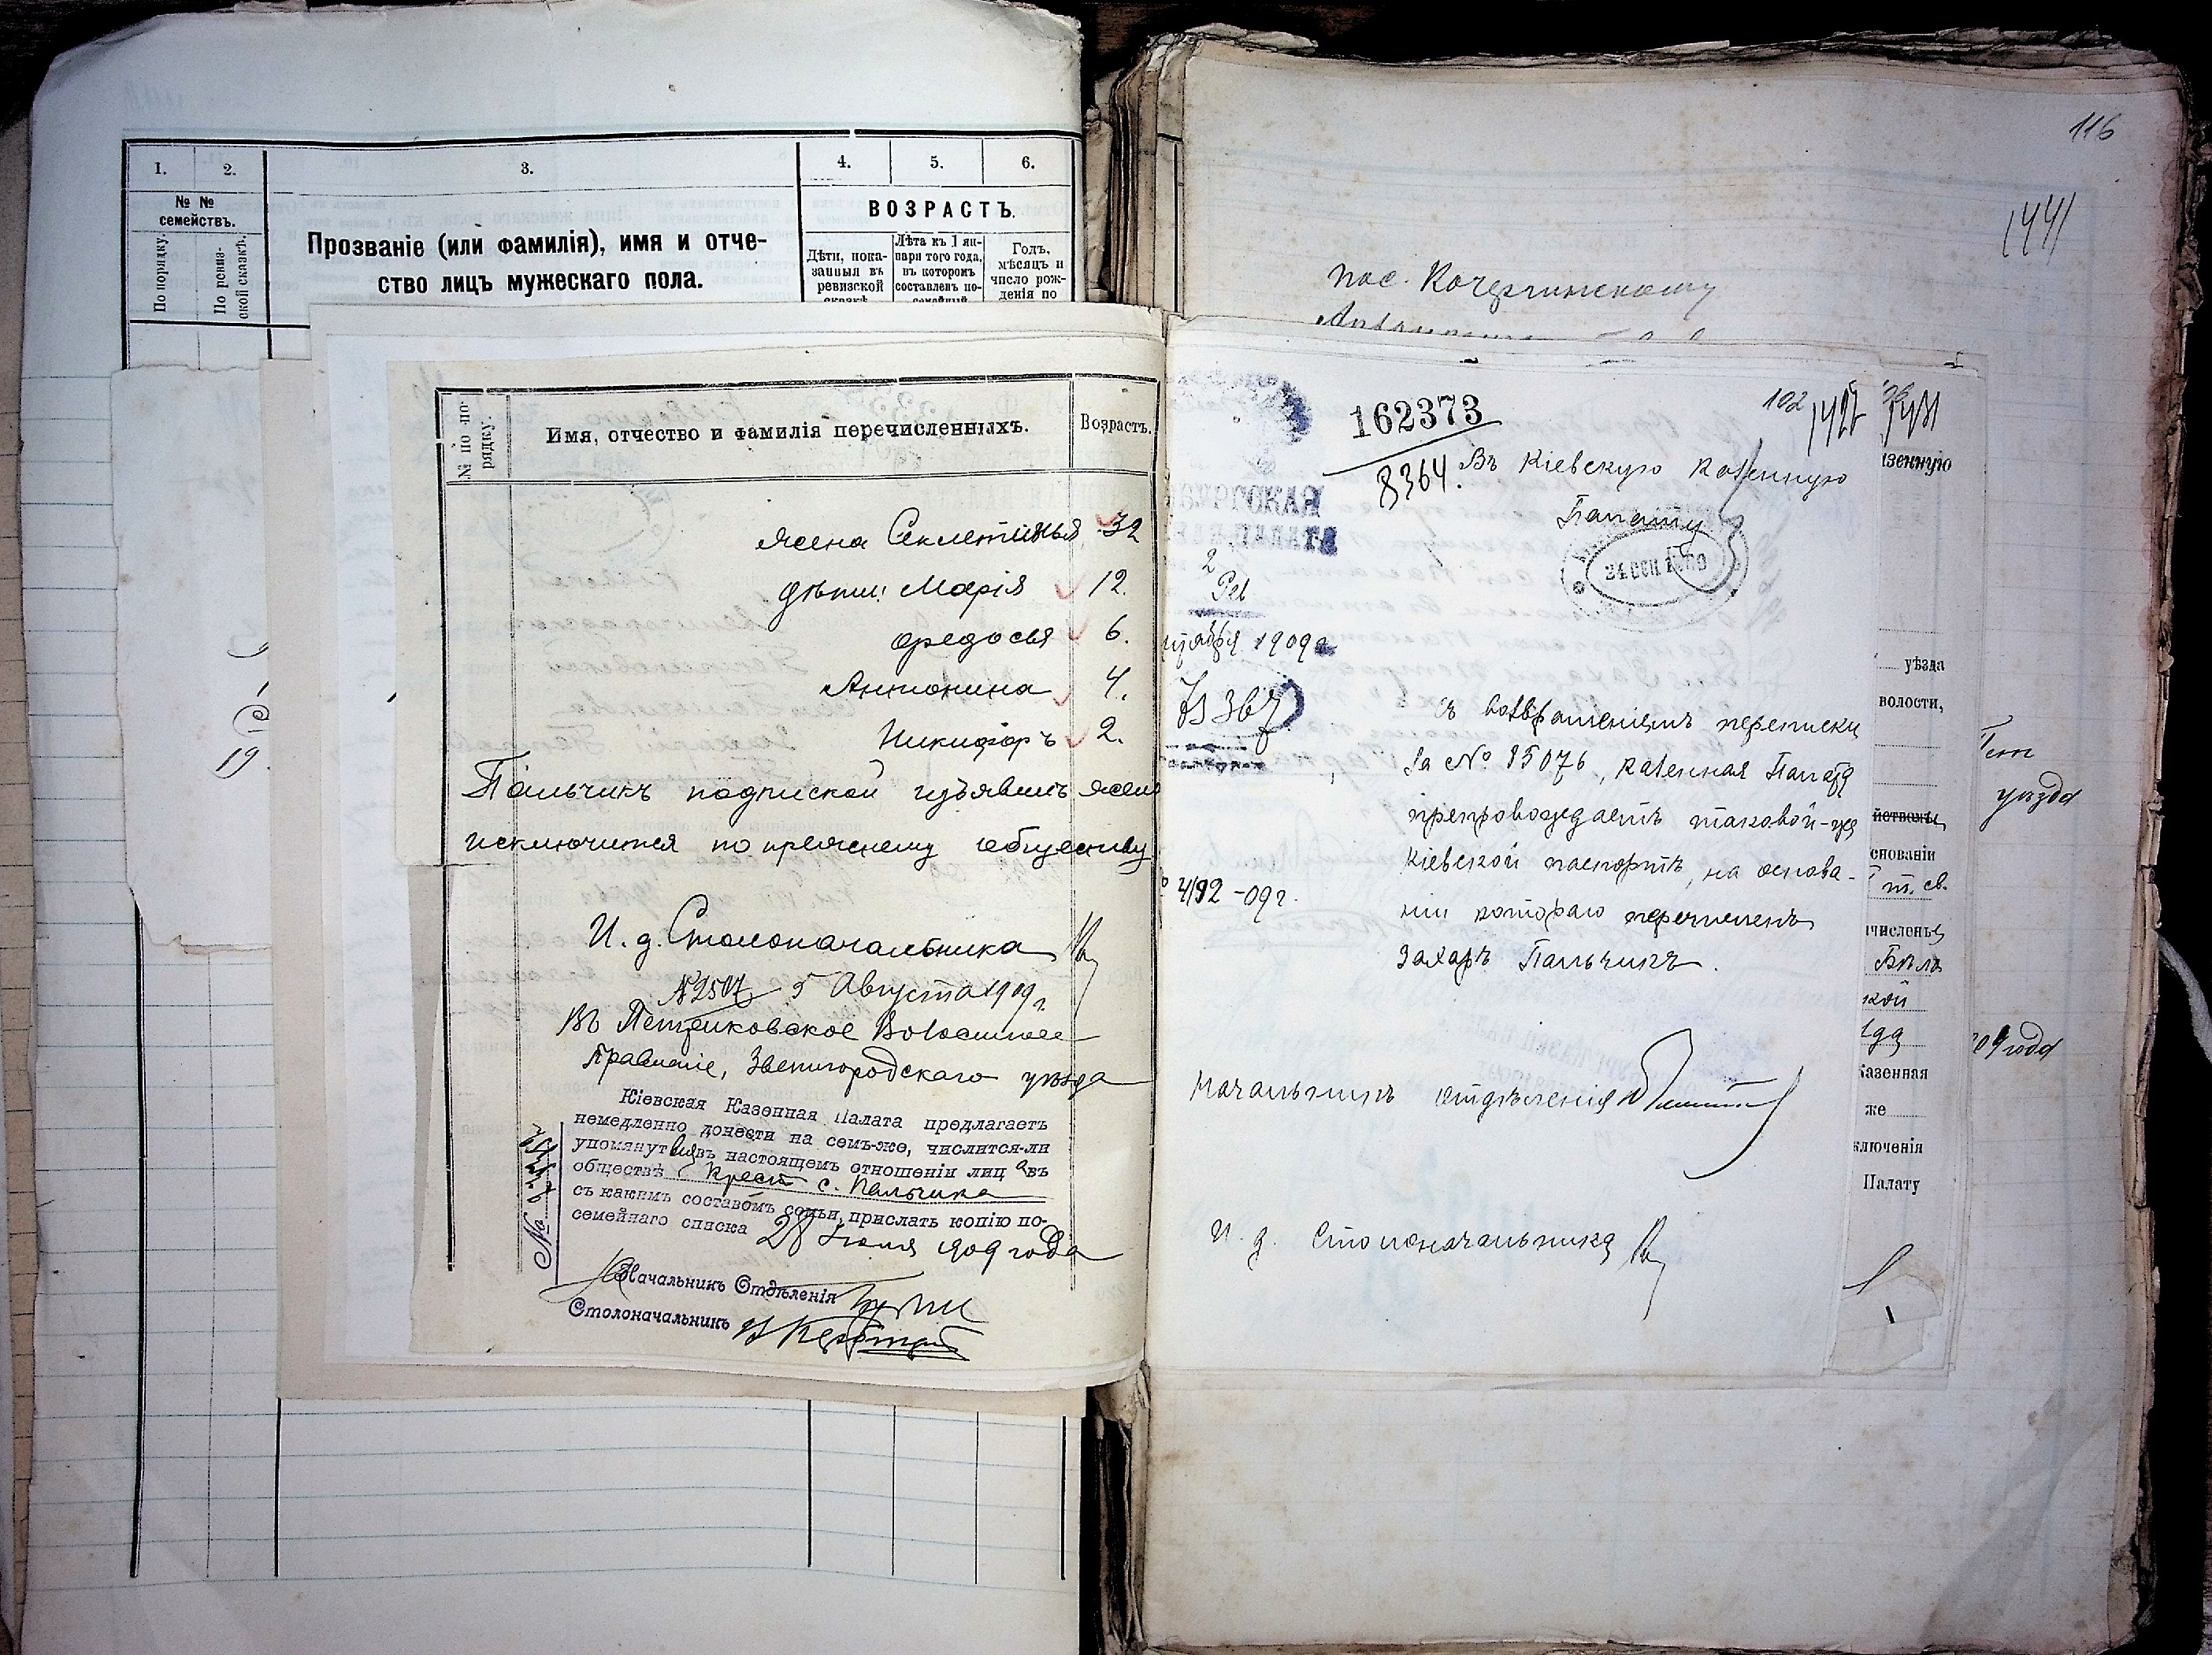 1.
2.
3.
4.
5.
6.
№ №
семействъ.
По порядку.
По ревиз-
ской сказкѣ.
Прозваніе (или фамилія), имя и отче-
ство лицъ мужескаго пола.
ВОЗРАСТЪ.
Дѣти, пока-
занныя въ
ревизской
Лѣта къ 1 ян-
варя того года,
въ которомъ
составленъ по-
Годъ,
мѣсяцъ и
число рож-
денія по
19
№ по по-
рядку.
Имя, отчество и фамилія перечисленныхъ.
Возрастъ.
жена Секлетинья 32
дѣти: Марія 12.
Федосья 6.
Антонина 4.
Никифоръ 2.
Пальчикъ подпиской изъявилъ жела
исключится по прежнему обществу
И. д. Столоначальника
№ 2507 5 Августа 1909 г.
Въ Петриковское Волостное
Правленіе, Звенигородскаго уѣзда
Кіевская Казенная Палата предлагаетъ
немедленно донести на семъ-же, числится-ли
упомянутыя въ настоящемъ отношеніи лица въ
обществѣ Крест с. Пальчика
съ какимъ составомъ семьи, прислать копію по-
семейнаго списка 28 Іюля 1909 года
№
Начальникъ Отдѣленія
Столоначальникъ
116
1441
пос. Кочержинскому
162373
8364.
102
1427
1431
Въ Кіевскую Казенную
Палату
24 СЕН 1909
2
1909 г.
75367
4192 -09 г.
Съ возвращеніемъ переписки
за № 85076, казенная Палата
препровождаетъ таковой-же
Кіевской паспортъ, на основа-
ніи котораго перечисленъ
Захаръ Пальчикъ.
Начальникъ отдѣленія
И. д. Столоначальника
зенную
уѣзда
волости,
снованіи
т. св.
численъ
Бѣло
кой
казенная
же
ключенія
Палату
уѣзда
09 года